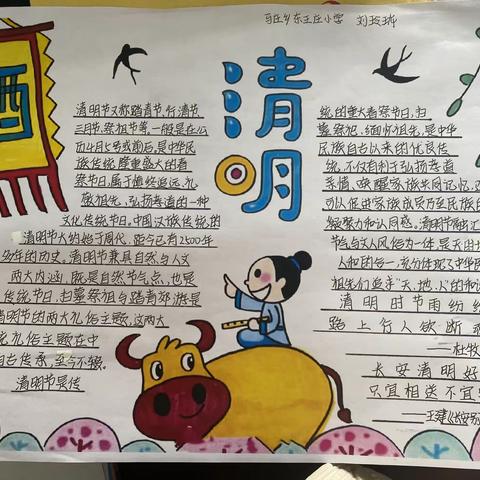 马庄乡东王庄小学 刘玫琦
酒
清明
清明节又称踏青节、行清节、
三月节、祭祖节等，一般是在公
历4月5号前后，是中华民
族传统隆重盛大的春
祭节日，属于慎终追远、礼
敬祖先、弘扬孝道的一种
文化传统节日。中国汉族传统的
清明节大约始于周代，距今已有2500年
多年的历史。清明节兼具自然与人文
两大内涵，既是自然节气点，也是
传统节日，扫墓祭祖与踏青郊游是
清明节的两大礼俗主题，这两大
统礼俗主题在中
自古传承，至今不辍。
清明节是传
统的重大春祭节日，扫
墓祭祀、缅怀祖先，是中华
民族自古以来的优良传
统，不仅有利于弘扬孝道
亲情、唤醒家族共同记忆，还
可以促进家族成员乃至民族的
凝聚力和认同感。清明节融汇
节气与人文风俗为一体，是天时地
人和的合一，充分体现了中华民
祖先们追求“天、地、人”的和
清明时节雨纷
路上行人欲断
——杜牧
长安清明好
只宜相送不宜
——王建《长安